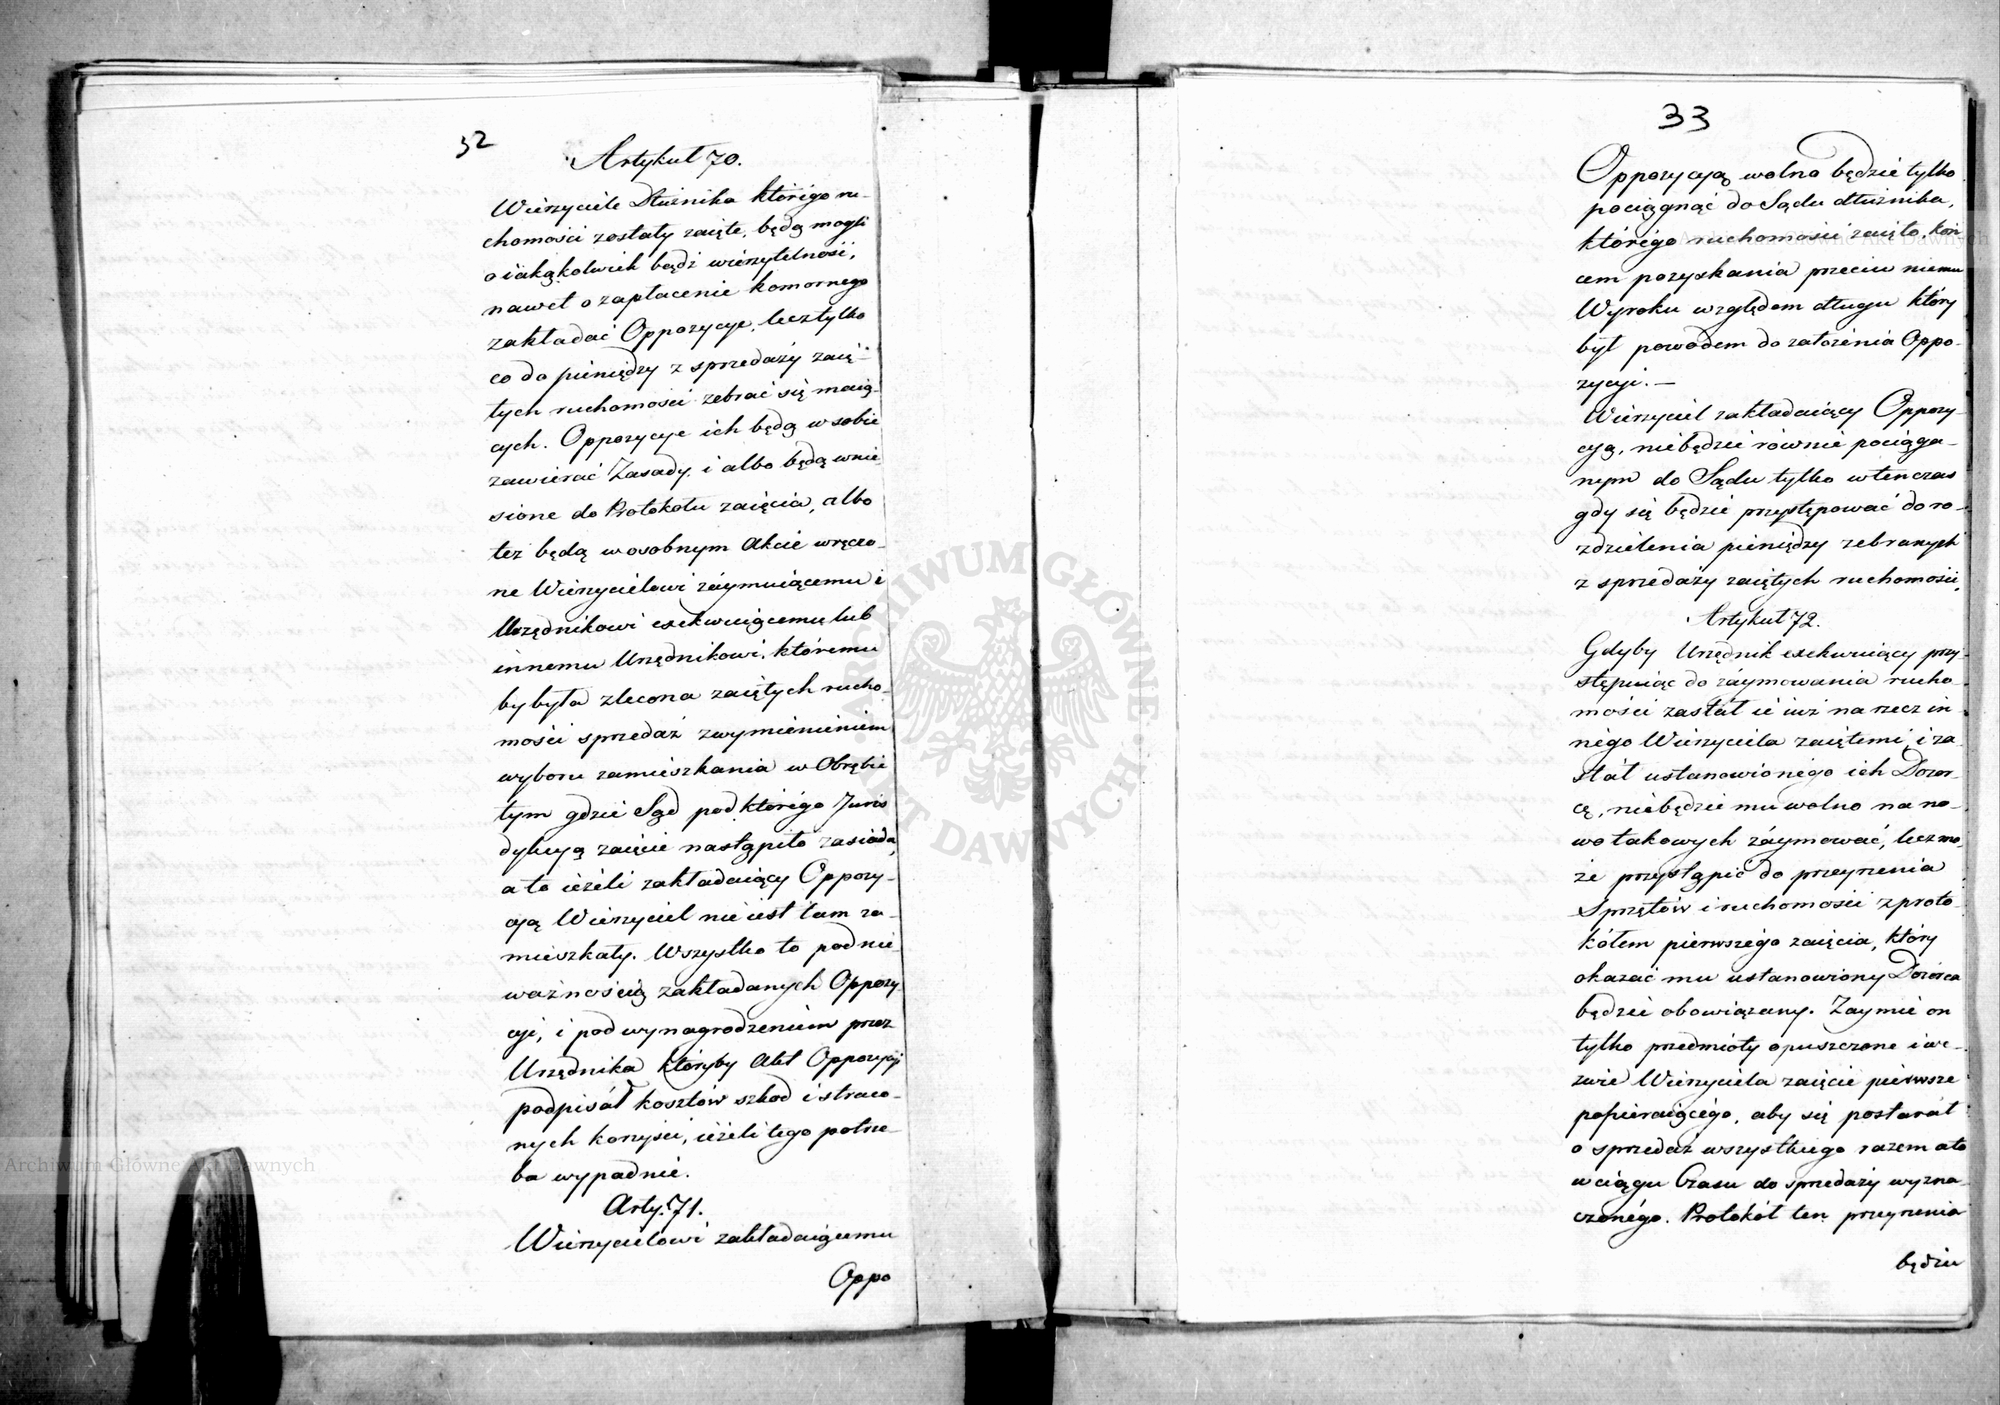 32
Artykuł 70.
Wierzyciele Dłużnika którégo ru-
chomości zostały zaięte, będą mogli
o iakąkolwiek bądź wierzytelność,
nawet o zapłacenie komornego
zakładać Oppozycye, lecz tylko
co do pieniędzy z sprzedaży zaię-
tych ruchomości zebrać się maią-
cych. Oppozycye ich będą w sobie
zawierać Zasady, i albo będą wnie
sione do Protokołu zaięcia, albo
też będą w osobnym Akcie wręczo-
ne Wierzycielowi záymuiącemu i
Urzędnikowi exekwuiącemu lub
innemu Urzędnikowi, któremu
by była zlecona zaiętych rucho-
mości sprzedaż z wymienieniem
wyboru zamieszkania w Obrębie
tym gdzie Sąd pod którégo Juris
dykcyą zaięcie nastąpiło zasiada,
a to ieżeli zakładaiący Oppozy-
cyą Wierzyciel nie iest tam za-
mieszkały. Wszystko to pod nie-
ważnością zakładanych Oppozy-
cyi, i pod wynagrodzeniem przez
Urzędnika któryby Akt Oppozycyi
podpisáł kosztów szkod i straco-
nych korzyści, ieżeli tego potrze-
ba wypadnie.
Arty. 71.
Wierzycielowi zakładaiącemu
Oppo
33
Oppozycyą wolno będzie tylko
pociągnąć do Sądu dłużnika,
którégo ruchomości zaięto, koń
cem pozyskania przeciw niemu
Wyroku względem długu który
był powodem do założenia Oppo-
zycyi. —
Wierzyciel zakładaiący Oppozy-
cyą, niebędzie równie pociąga-
nym do Sądu tylko wtenczas
gdy się będzie przystępować do ro-
zdzielenia pieniędzy zebranych
z sprzedaży zaiętych ruchomości,
Artykuł 72.
Gdyby Urzędnik exekwuiący przy-
stępuiąc do záymowania rucho-
mości zastał ié iuż na rzecz in-
négo Wierzyciela zaiętemi, i za-
stáł ustanowionégo ich Dozor-
cę, niebędzie mu wolno na no-
wo takowych záymować, lecz mo-
że przystąpić do przeyrzenia
Sprzętów i ruchomości z proto-
kółem pierwszégo zaięcia, który
okazać mu ustanowiony Dozórca
będzie obowiązany. Zaymie on
tylko przedmioty opuszczone i we-
zwie Wierzyciela zaięcie pierwsze
popieraiącégo, aby się postaráł
o sprzedaż wszystkiego razem a to
w ciągu Czasu do sprzedaży wyzna-
czonégo. Protokół ten przeyrzenia
będzie
ARCHIWUM GŁÓWNE AKT DAWNYCH
Archiwum Główne Akt Dawnych
Archiwum Główne Akt Dawnych